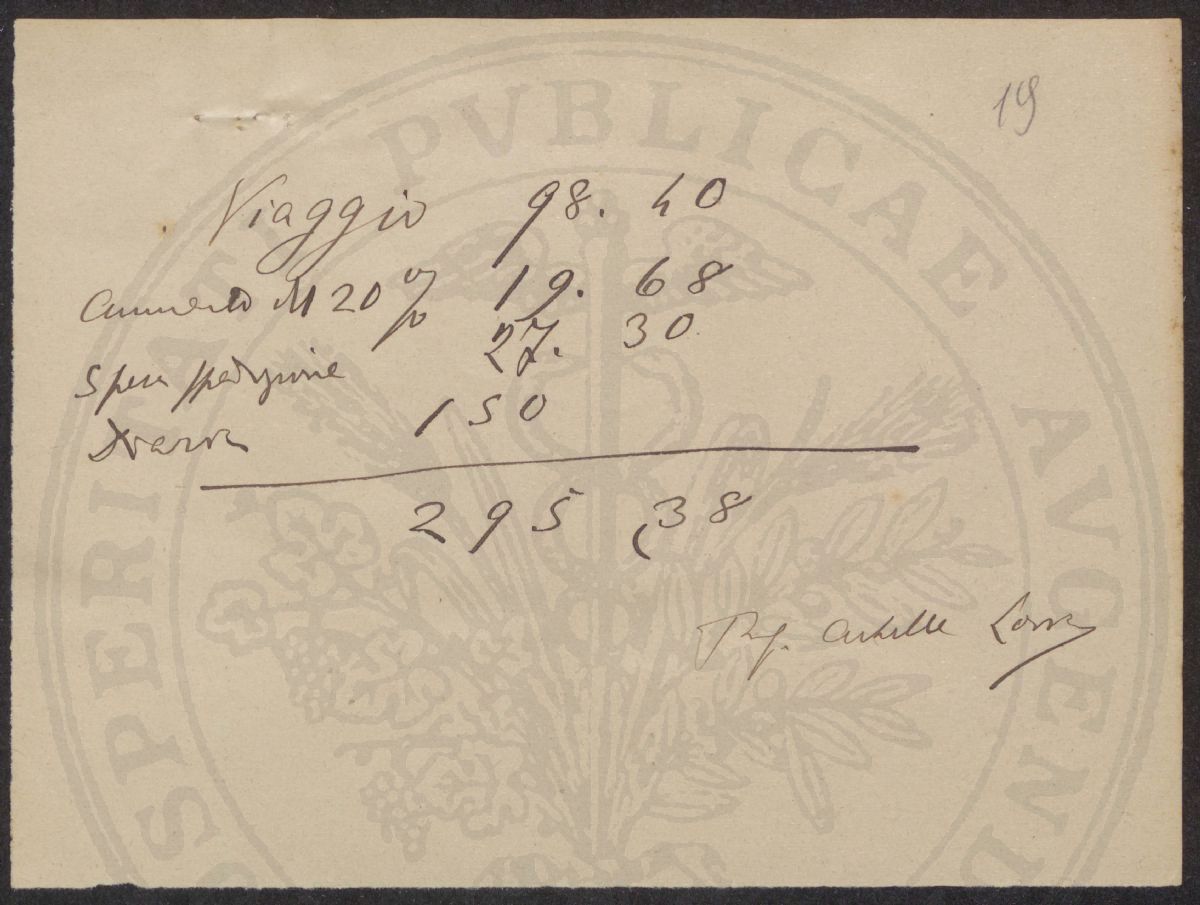 19
PVBLICAE
SPERITATI
AVGEND
Viaggio 98. 40
aumento del 20 % 19. 68
Spese spedizione 27. 30
Diaria 150
295,38
Prof. Achille Loria